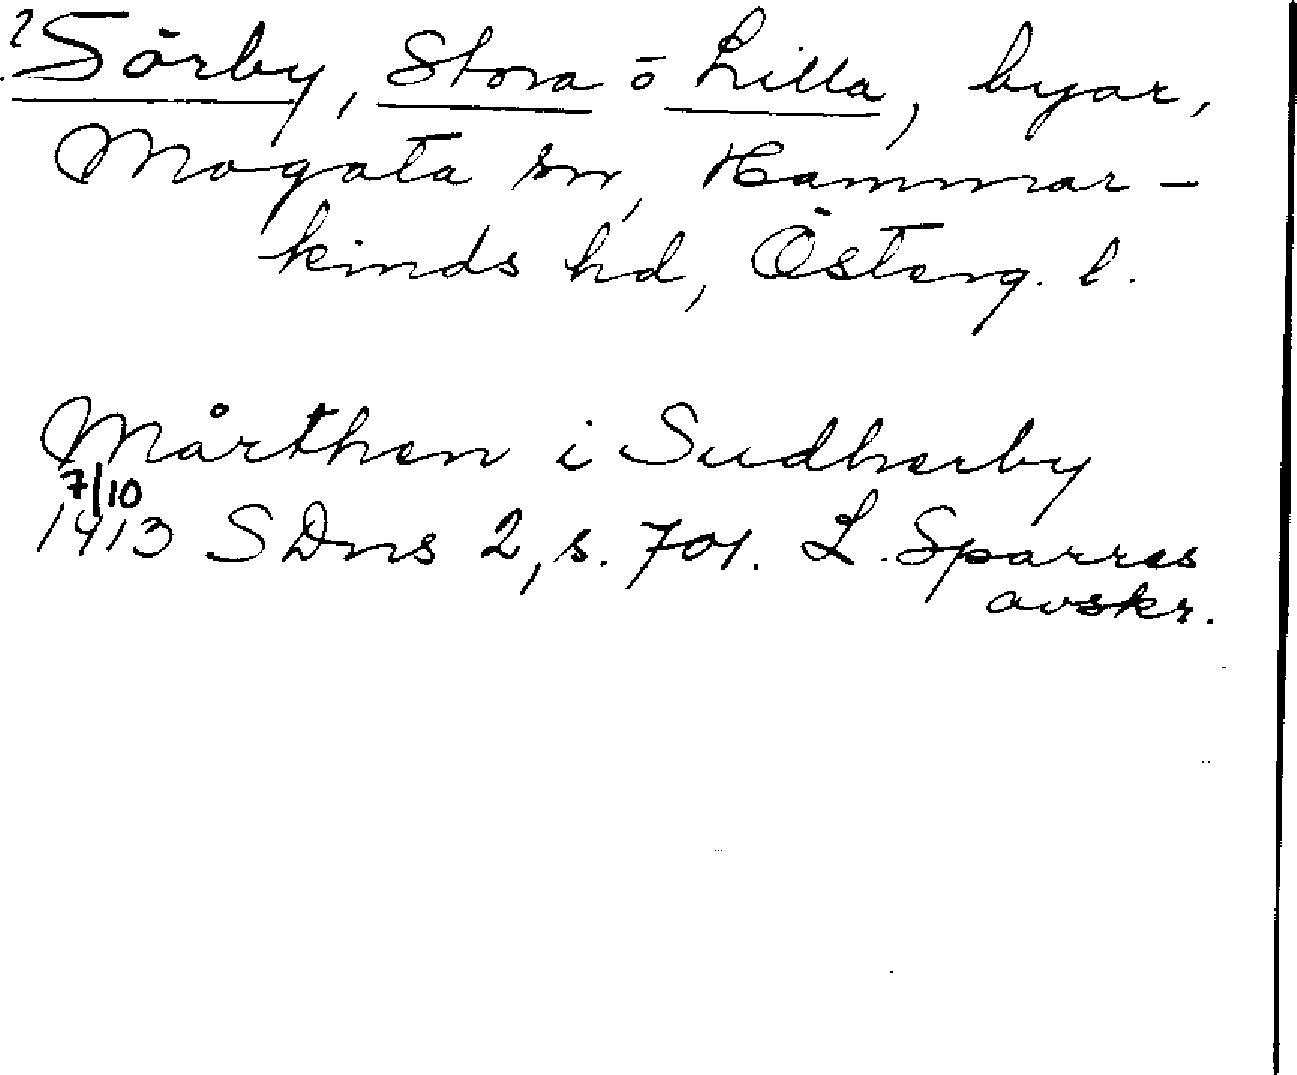 ? Sörby, Stora o Lilla, byar,
Mogata sn, Hammar-
kinds hd, Österg. l.
Mårthen i Sudherby
7/10
1413 SDns 2, s. 701. L. Sparres
avskr.